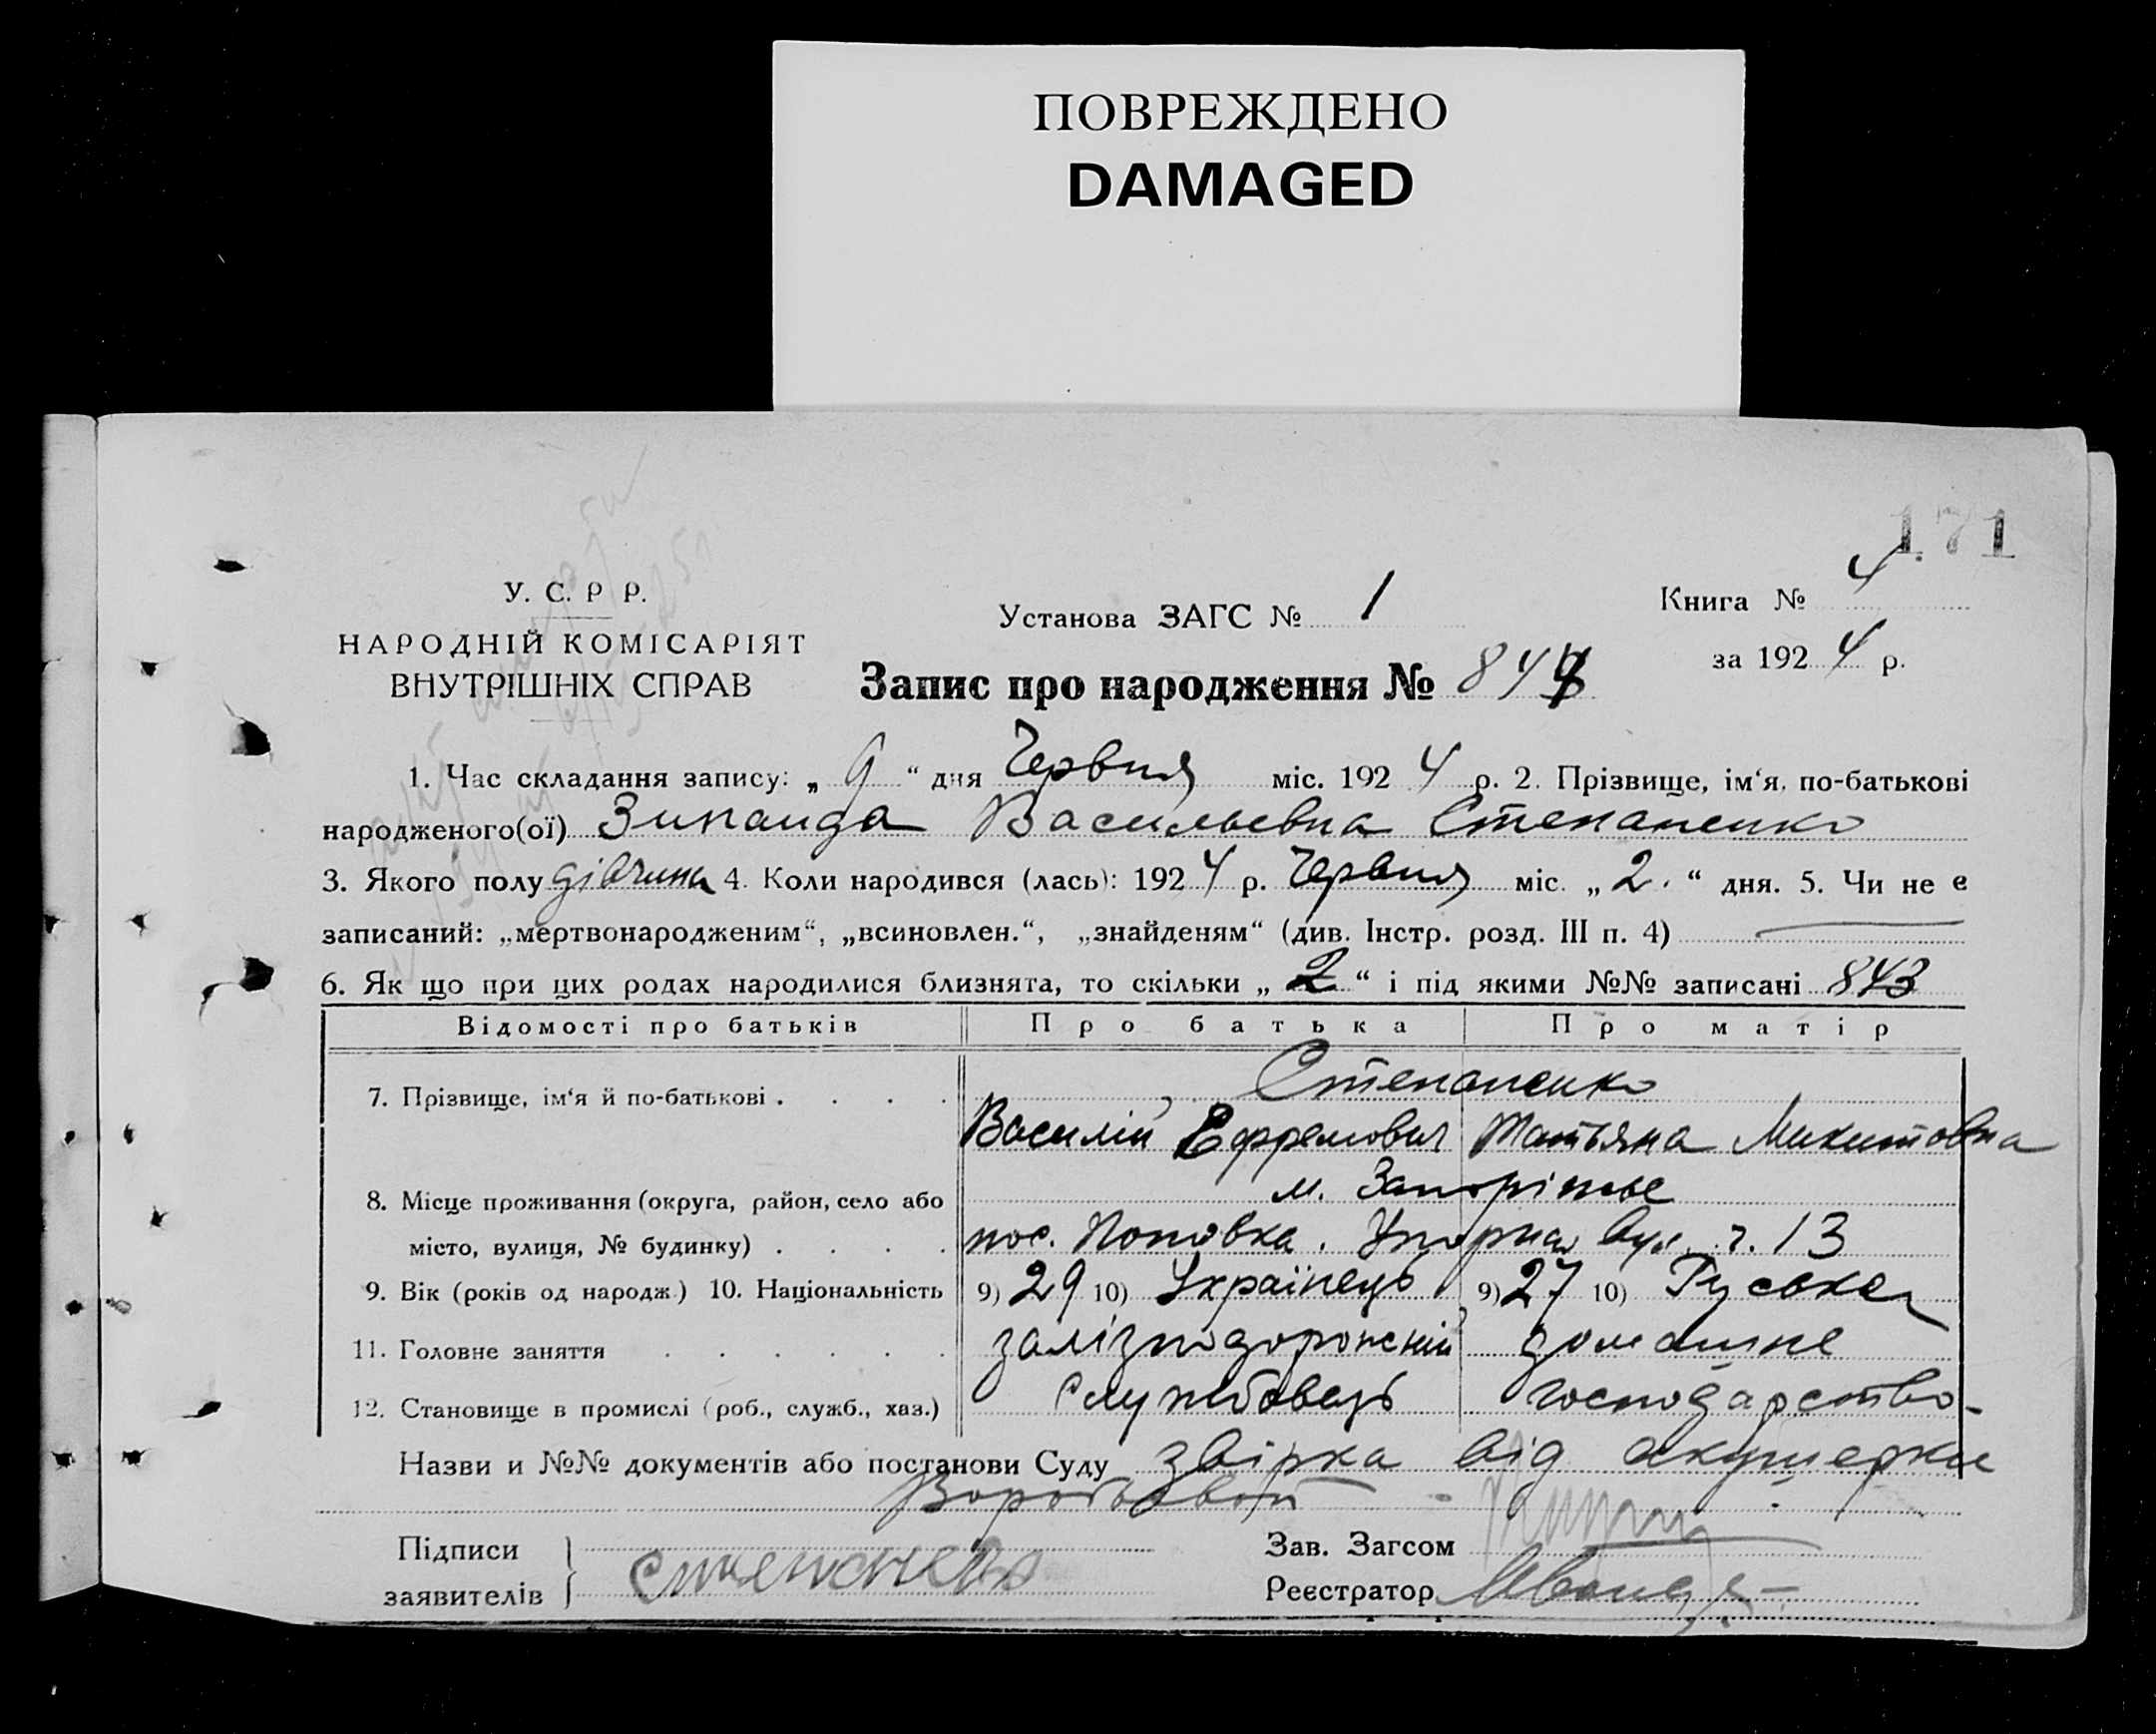 ПОВРЕЖДЕНО
DAMAGED
171
У. С. Р Р.
НАРОДНІЙ КОМІСАРІЯТ
ВНУТРІШНІХ СПРАВ
Установа ЗАГС № 1
Книга № 4
за 192 4 р.
Запис про народження № 844
1. Час складання запису: „ 9 “ дня Червня міс. 192 4 р. 2. Прізвище, ім‘я, по-батькові
народженого(ої) Зинаида Васильевна Степаненко
3. Якого полу дівчина 4. Коли народився (лась): 192 4 р. Червня міс. „ 2. “ дня. 5. Чи не є
записаний: „мертвонародженим“, „всиновлен.“, „знайденям“ (див. Інстр. розд. III п. 4)
6. Як що при цих родах народилися близнята, то скільки „ 2 “ і під якими №№ записані 843
Відомості про батьків Про батька Про матір
7. Прізвище, ім‘я й по-батькові . . . . Степаненко
Василий Ефремович Татьяна Микитовна
8. Місце проживання (округа, район, село або м. Запоріжье
місто, вулиця, № будинку) . . . . пос. Поповка. вул. ч. 13
9. Вік (років од народж.) 10. Національність 9) 29 10) Українець 9) 27 10) Руська
11. Головне заняття . . . . . . залізнодорожний домашне
12. Становище в промислі (роб., служб., хаз.) службовець господарство-
Назви и №№ документів або постанови Суду звірка від акушерки
Підписи
заявителів Степаненко
Зав. Загсом
Реєстратор